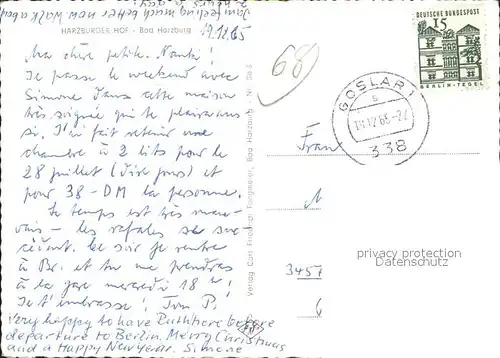 I am feeling much better now walk about
2 hours a day.
HARZBURGER HOF - Bad Harzburg
19.12.65
Ma chère petite Nanki!
Je passe le weekend avec
Simone dans cette maison
très soignée qui te plairait aus-
si. J'ai fait retenir une
chambre à 2 lits pour le
28 juillet (dix jours) et
pour 38.-DM la personne.
Le temps est très mau-
vais - les rafales se suc-
cèdent. Ce soir je rentre
à Br. et tu me prendras
à la gare mercredi 18 !
Je t'embrasse!
Very happy to have Ruth here before
departure to Berlin. Merry Christmas
and a Happy New Year. Simone
68
Verlag Curt Friedrich Flergmeier, Bad Harzburg
DEUTSCHE BUNDESPOST
15
BERLIN-TEGEL
GOSLAR 1
s
338
Frau
3457
privacy protection
Datenschutz